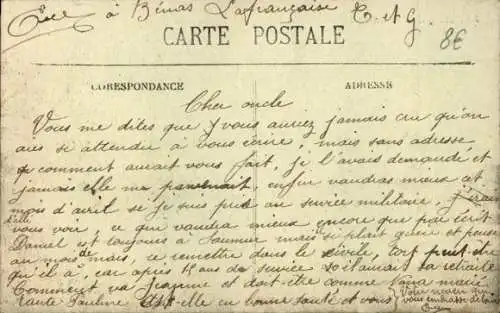 à Bénas Lafrançaise T et G
CARTE POSTALE
8€
CORESPONDANCE ADRESSE
Cher oncle
Vous me dites que vous auriez jamais cru qu'on
aies si attendu à vous écrire, mais sans adresse,
comment aurait vous fait, je l'avais demandé et
jamais elle me parvenait, enfin vaudras mieux cet
mois d'avril se je suis pas au service militaire, j'irai
vous voir, ce qui vaudra mieux encore que par écrit
Daniel est toujours à Saumur mais si plait guère et pense
au mois de mai, se remettre dans le civile, tort peut-être
qu'il a, car après 15 ans de service s'il aurait la retraite
Comment va Jeanne et doit-être comme Nana marié
tante Pauline est-elle en bonne santé et vous
Votre neveu qui
vous embrasse de loin